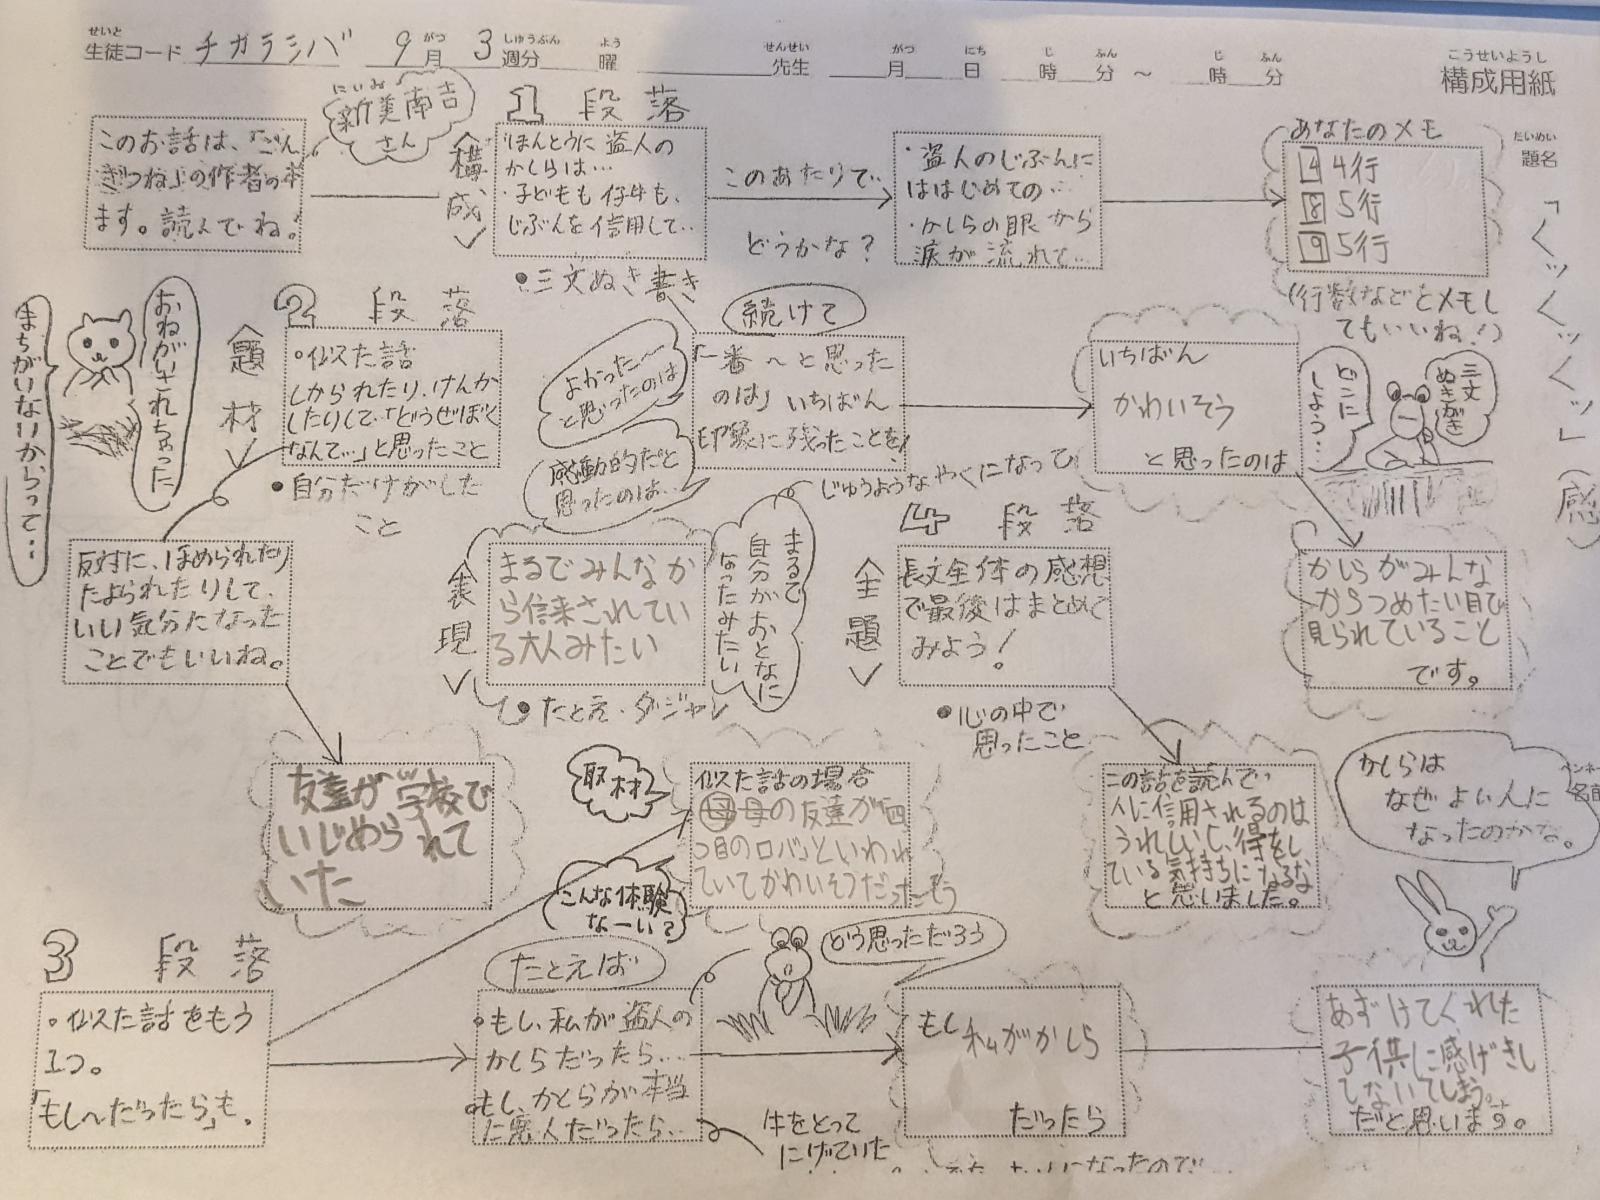 せいと
生徒コード チカラシバ 9月 3週分 曜 先生 月 日 時 分 ~ 時 分
がつ しゅうぶん よう せんせい がつ にち じ ふん じ ふん
こうせいようし
構成用紙
だいめい
題名
「くッくッくッ」(感)
1 段落
<構成>
このお話は、「ごん
ぎつね」の作者の本
ます。読んでね!
にいみ
新美南吉
さん
・ほんとうに盗人の
かしらは…
・子どもも仔牛も、
じぶんを信用して…
・三文ぬき書き
このあたりで…
どうかな?
・盗人のじぶんに
はじめての…
・かしらの眼から
涙が流れて…
あなたのメモ
4 4行
8 5行
9 5行
(行数などとメモし
てもいいね!)
三文
ぬきがき
どこに
しよう…
続けて
「一番~と思った
のは」いちばん
印象に残ったことを、
よかった~
と思ったのは
感動的だと
思ったのは…
いちばん
かわいそう
と思ったのは
かしらがみんな
からつめたい目で
見られていること
です。
2 段落
<題材>
・似た話
しかられたり、けんか
したりして、「どうせぼく
なんて…」と思ったこと
・自分だけがした
こと
おねがいされちゃった
まちがいないからって…
反対に、ほめられたり
たよられたりして、
いい気分になった
ことでもいいね。
友達が学校で
いじめられて
いた
<表現>
まるでみんなか
ら信来されてい
る大人みたい
・たとえ・ダジャレ
まるで
自分がおとなに
なったみたい
じゅうようなやくになって
3 段落
・似た話をもう
1つ。
「もし~だったら」も。
取材
こんな体験
なーい?
似た話の場合
母 母の友達が「四
つ目のロバ」といわれ
ていてかわいそうだったそう
たとえば
・もし、私が盗人の
かしらだったら…
どう思っただろう
牛をとって
にげていた
もし私がかしら
だったら
あずけてくれた
子供に感げきし
してしまう。
だと思います。
4 段落
<主題>
長文全体の感想
で最後はまとめて
みよう!
・心の中で
思ったこと
この話を読んで、
人に信用されるのは
うれしいし、得をし
ている気持ちになるな
と思いました。
かしらは
なぜよい人に
なったのかな。